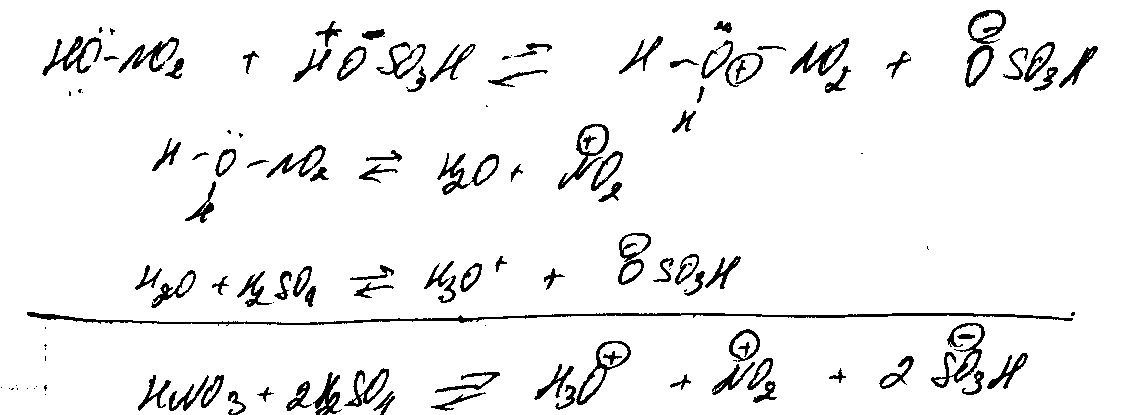 HÖ-NO₂ + H⁺O⁻SO₃H ⇌ H-Ö⊕-NO₂ + O⊖SO₃H
H
H-Ö-NO₂ ⇌ H₂O + N⊕O₂
H
H₂O + H₂SO₄ ⇌ H₃O⁺ + O⊖SO₃H
HNO₃ + 2H₂SO₄ ⇌ H₃O⊕ + N⊕O₂ + 2 SO₃⊖H